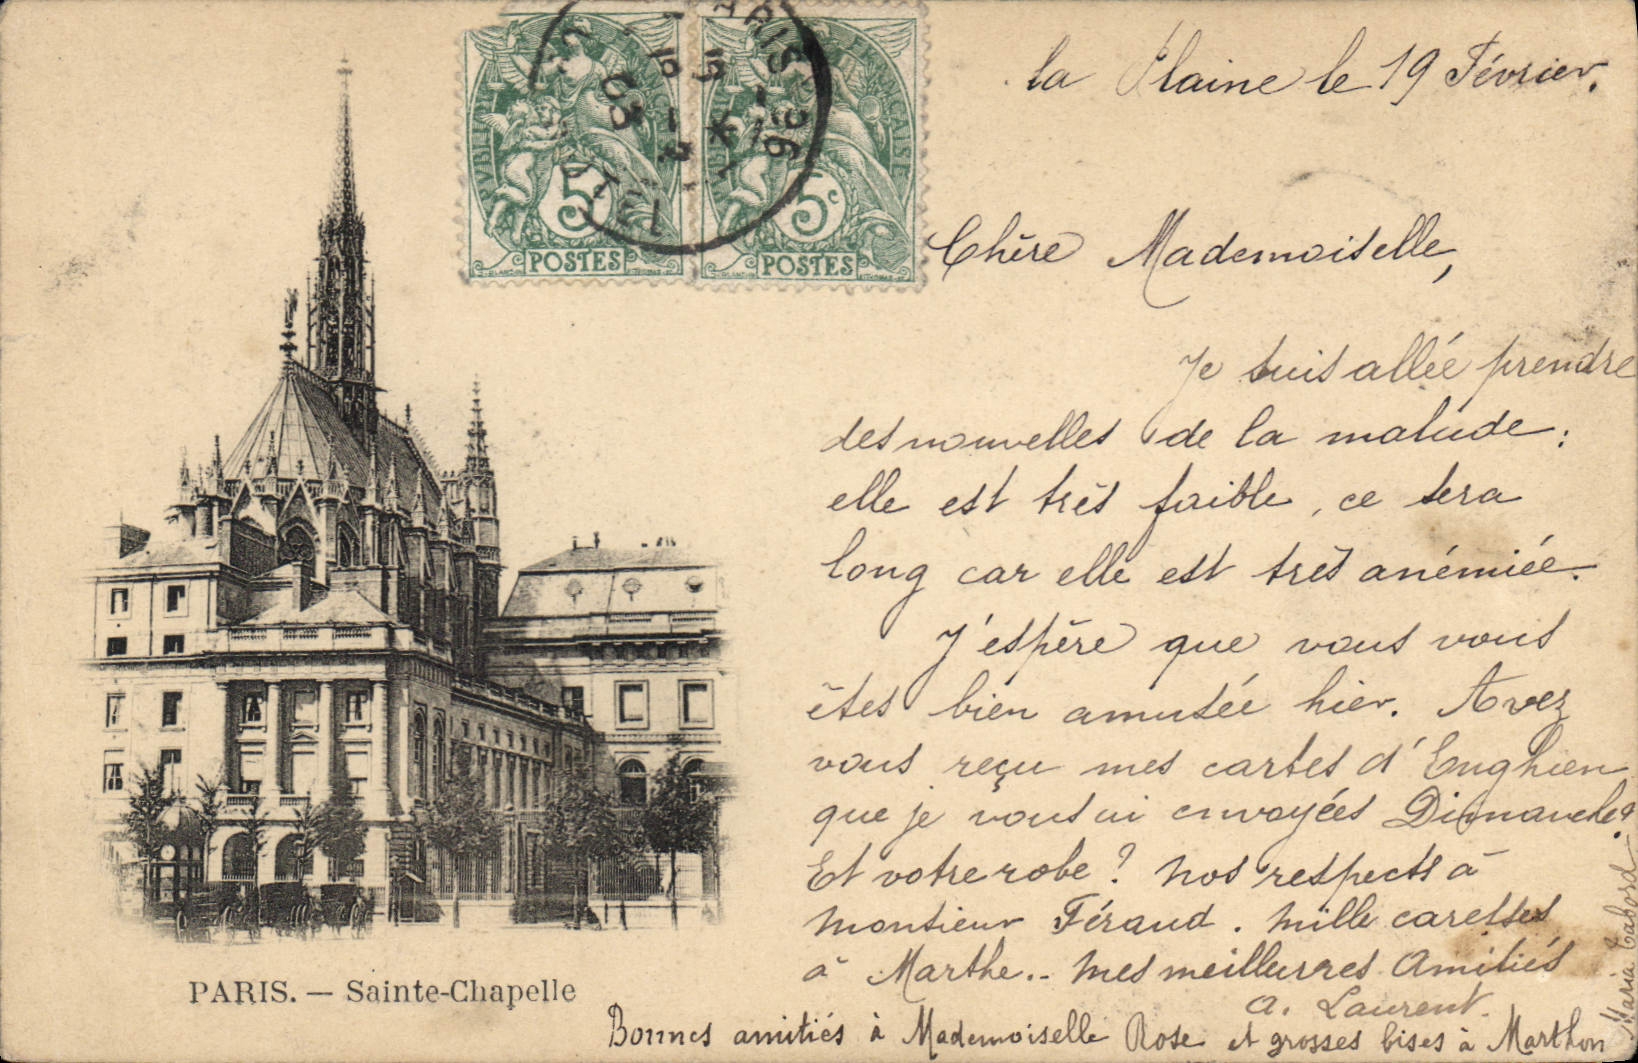 la Plaine le 19 Février.
Chère Mademoiselle,
Je suis allée prendre
des nouvelles de la malade :
elle est très faible, ce sera
long car elle est très anémiée.
J'espère que vous vous
êtes bien amusée hier. Avez
vous reçu mes cartes d'Enghien
que je vous ai envoyées Dimanche ?
Et votre robe ? Nos respects à
Monsieur Féraud. Mille caresses
à Marthe.. Mes meilleures Amitiés
A. Laurent.
Bonnes amitiés à Mademoiselle Rose et grosses bises à Marthon
Maria Tabord
PARIS. — Sainte-Chapelle
RÉPUBLIQUE FRANÇAISE
5c
POSTES
5c
POSTES
PARIS
03